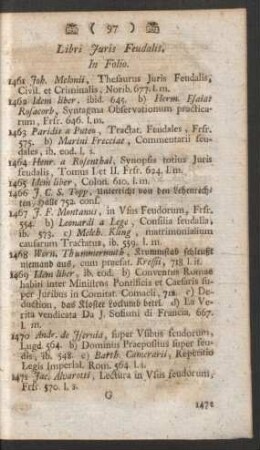 ( 97 )
Libri Juris Feudalis,
In Folio.
1461 Joh. Melmii, Thesaurus Juris Feudalis,
Civil. et Criminalis, Norib. 677. l. m.
1462 Idem liber, ibid. 645. b) Herm. Esaiae
Rosacorb, Syntagma Observationum practica-
rum, Frfr. 646. l. m.
1463 Paridis a Puteo, Tractat. Feudales, Frfr.
575. b) Marini Frecciae, Commentarii feu-
dales, ib. eod. l. 1.
1464 Henr. a Rosenthal, Synopsis totius Juris
feudalis, Tomus I et II. Frfr. 624. l. m
1465 Idem liber, Colon. 610. l. m.
1466 J. C. S. Topp, Unterricht von den Lehenrech-
ten, Halle 752. conf.
1467 J. F. Montanus, in Vsus Feudorum, Frfr.
554. b) Leonardi a Lege, Consilia feudalia,
ib. 573. c) Melch. Kling, matrimonialium
causarum Tractatus, ib. 559. l. m.
1468 Wern. Thummermuth, Krumstab schleust
niemand aus, cum praefat. Kressii, 718. l. it.
1469 Idem liber, ib. eod. b) Conventus Romae
habiti inter Ministros Pontificis et Caesaris su-
per Juribus in Comitat. Comacli, 718. c) De-
duction, das Kloster betr. d) La Ve-
rita vendicata Da J. Sofismi di Francia. 667.
l. m.
1470 Andr. de Isernia, super Vsibus feudorum,
Lugd. 564. b) Dominus Praepositus super feu-
dis, ib. 548. c) Barth. Camerarii, Repetitio
Legis Imperial. Rom. 564. l. i.
1471 Jac. Alvarotti, Lectura in Vsus feudorum,
Frfr. 570. l. 2.
G
1472